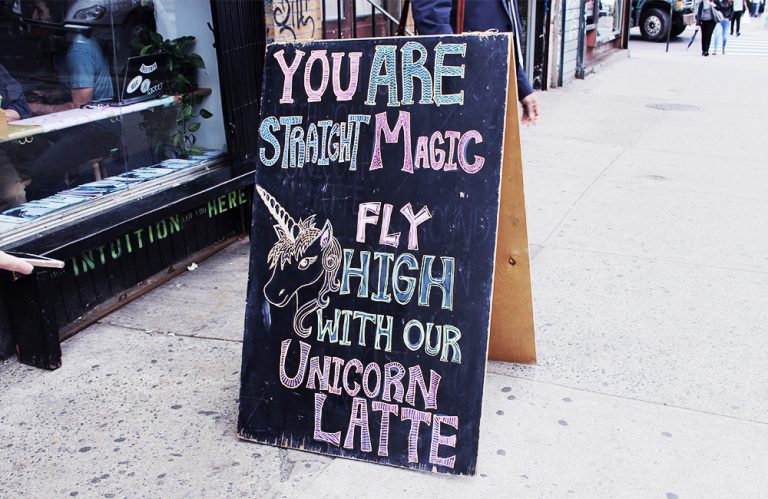 YOU ARE
STRAIGHT MAGIC
FLY
HIGH
WITH OUR
UNICORN
LATTE
INTUITION
YOU HERE